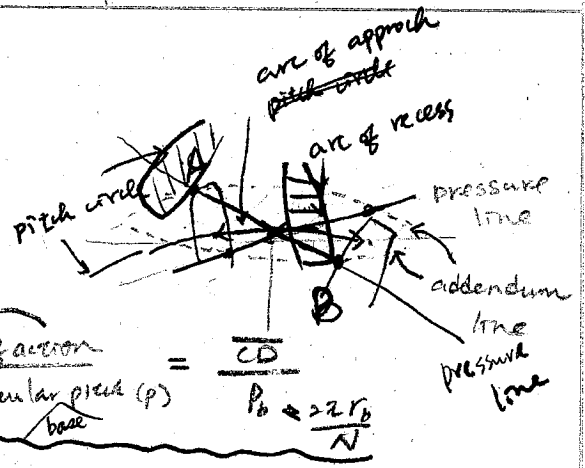 arc of approch
pitch circle
arc of recess
A
pitch circle
pressure
line
B
addendum
line
pressure
line
action = CD
cular pitch (p) Pb = 2π rb
base N